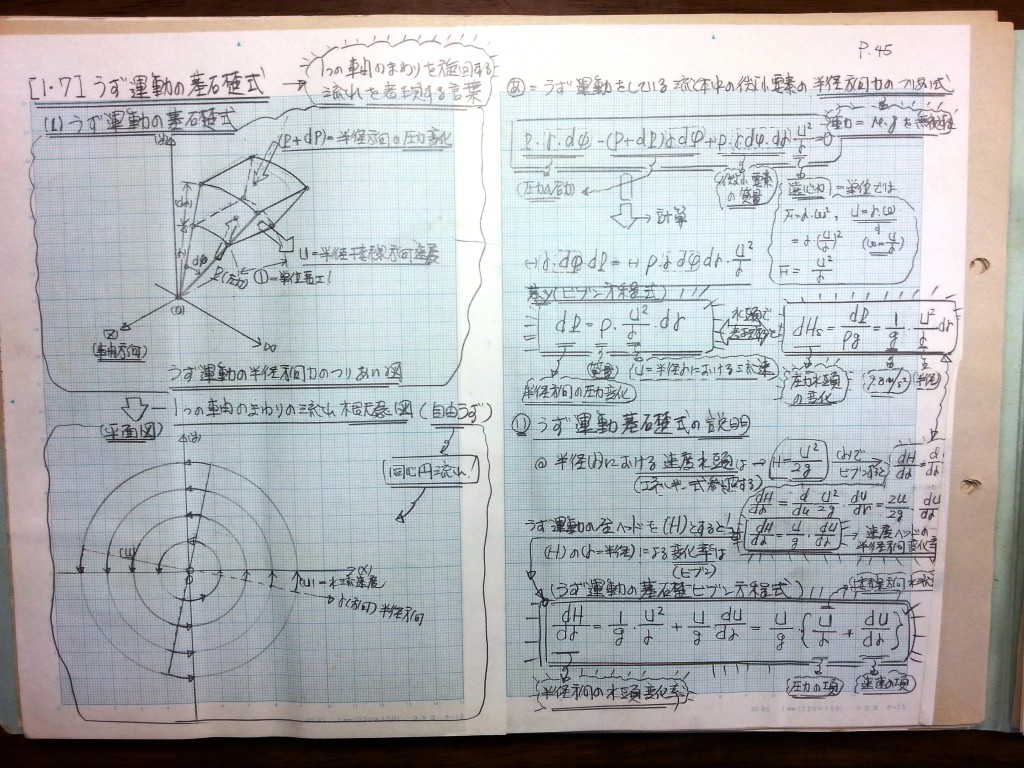 P.45
[1・7] うず運動の基礎式
1つの車由のまわりを旋回する
流れを表現する言葉
(1) うず運動の基礎式
(P+dP)=半径方向の圧力変化
U=半径r接線方向速度
①=単位重工!
(0)
うず運動の半径方向力のつりあい図
(平面図)
1つの車由のまわりの流れ模様図(自由うず)
同心円流れ!
(U)=水流速度
r(方向)半径方向
あ=うず運動をしている流体中の微小要素の半径方向力のつりあい式
P・r・dφ-(P+dP)r・dφ+ρ・r・dφ・dr・U²/r=0
微小要素
の質量
遠心力=単位では
F=r・ω², U=r・ω
=r(U/r)²
(ω=U/r)
F=U²/r
計算
(-)r・dφ・dP=(-)ρ・r・dφ・dr・U²/r
基く(ビブン方程式)
dP=ρ・U²/r・dr
水頭で
表現すると
dHs=dP/ρg=1/g・U²/r・dr
半径方向の圧力変化
圧力水頭
の変化
(9.8m/s²)
(半径)
① うず運動基礎式の説明
@ 半径(r)における速度水頭は→H=U²/2g
(r)で
ビブンすると
dH/dr=d
(エネルギー式参照する)
dH/dr=d/du・U²/2g・dU/dr=2U/2g・dU/dr
うず運動の全ヘッドを(H)とすると
dH/dr=U/g・dU/dr
速度ヘッドの
半径方向変化率
(H)の(r=半径)による変化率は
(ビブン)
(うず運動の基礎ビブン方程式)
dH/dr=1/g・U²/r+U/g・dU/dr=U/g{U/r+dU/dr}
半径方向の水頭変化率
圧力の項
速度の項